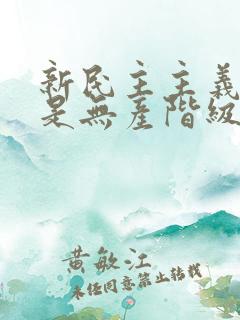 新民主主義
是無産階級
黄敏江
未经同意禁止转载